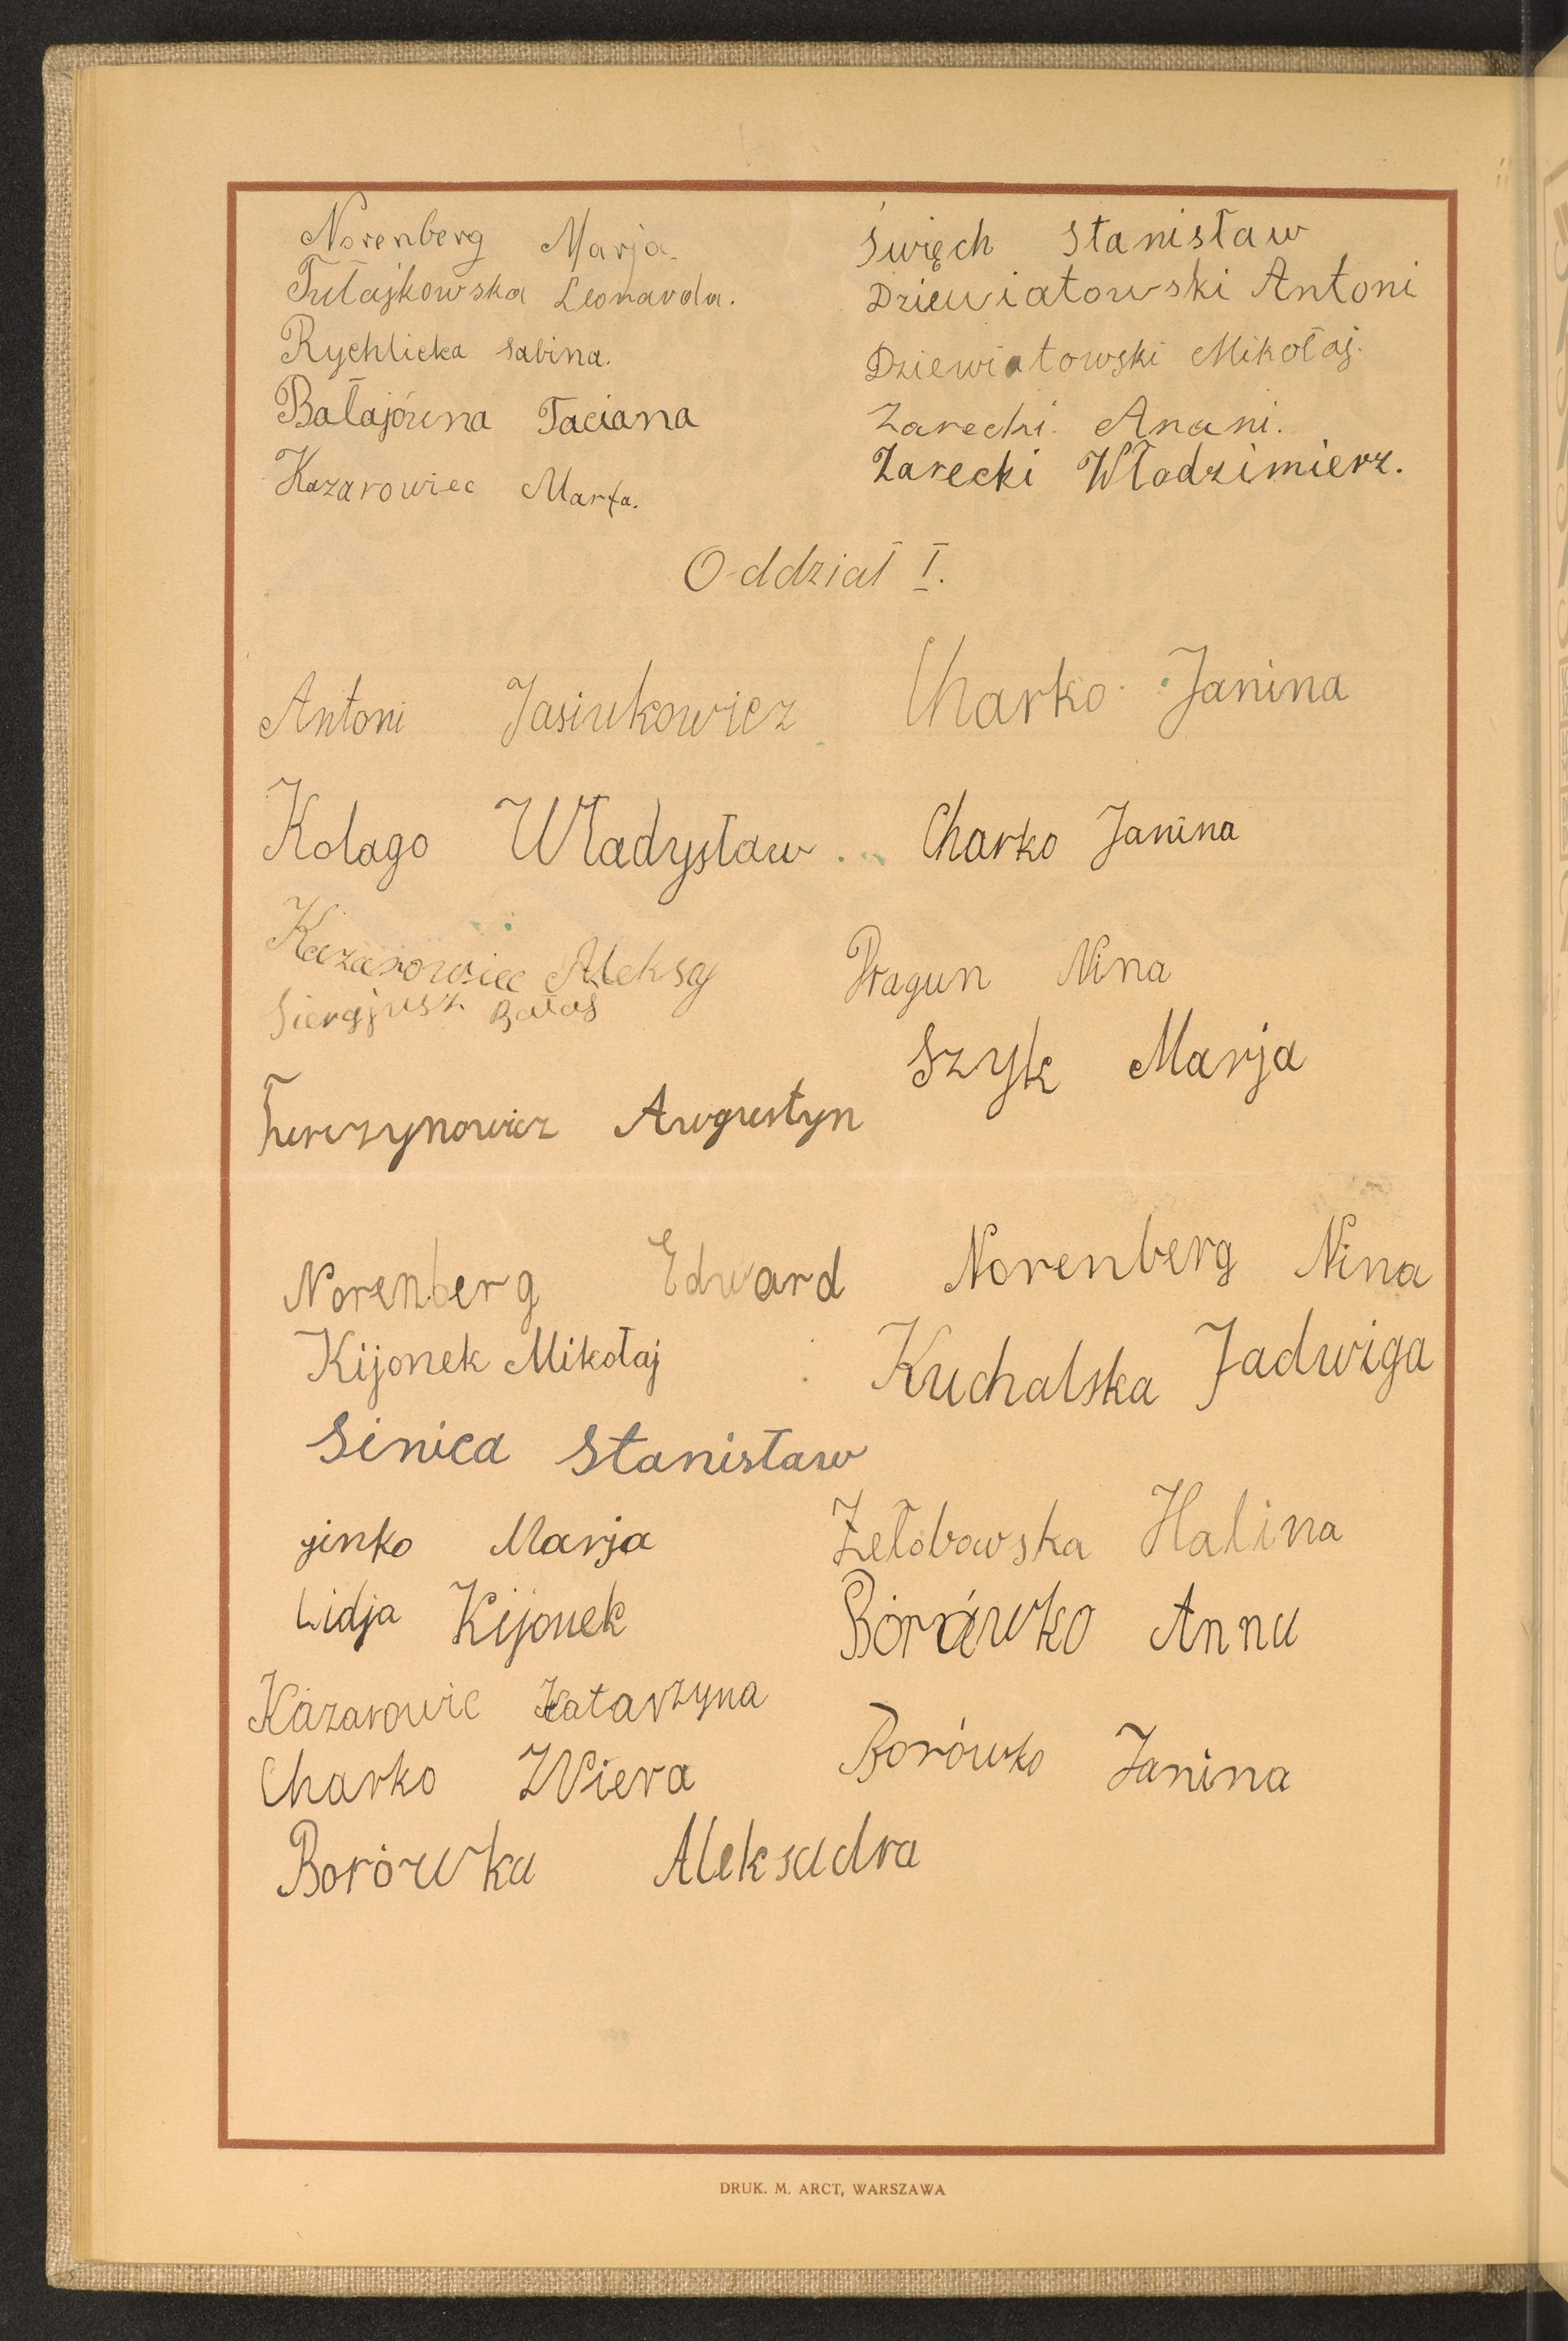 Norenberg Marja.
Tułajkowska Leonarda.
Rychlicka Sabina.
Bałajówna Taciana
Kazarowiec Marta.
Święch Stanisław
Dziewiatowski Antoni
Dziewiatowski Mikołaj.
Zarecki. Anani.
Zarecki Włodzimierz.
Oddział I.
Antoni Jasiukowicz
Charko Janina
Kolago Władysław
Charko Janina
Kazarowiec Aleksy
Siergjusz Bałaj
Pragun Nina
Szyk Marja
Turczynowicz Augustyn
Norenberg Edward
Norenberg Nina
Kijonek Mikołaj
Kuchalska Jadwiga
Sinica Stanisław
jinko Marja
Żełobowska Halina
Lidja Kijonek
Borówko Anna
Kazarowic Katarzyna
Borówko Janina
Charko Wiera
Borówka Aleksadra
DRUK. M. ARCT, WARSZAWA